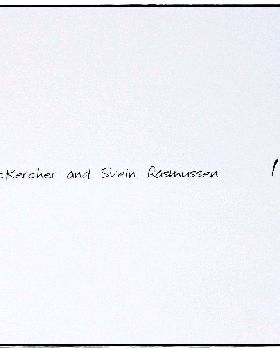 Kercher and Svein Rasmussen